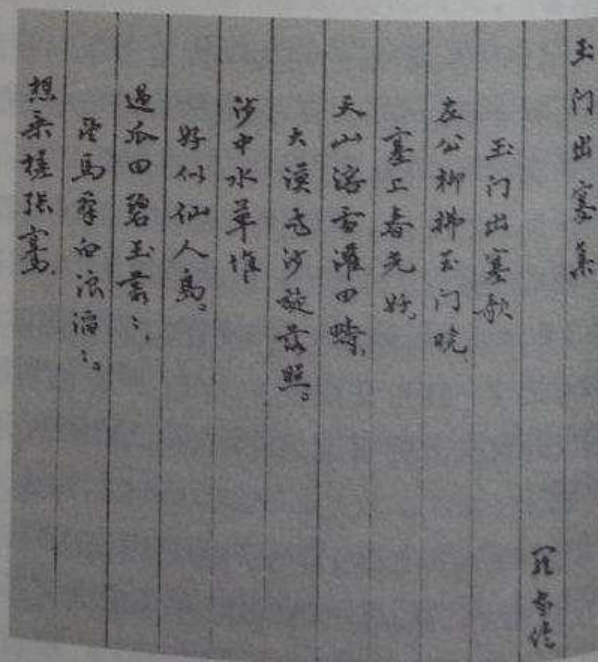 玉门出塞集
羅家倫
玉门出塞歌
左公柳拂玉门晓,
塞上春光好。
天山溶雪灌田疇,
大漠飞沙旋落照。
沙中水草堆
好似仙人島。
過瓜田碧玉叢〻,
望馬羣白浪滔〻。
想乘槎張騫,